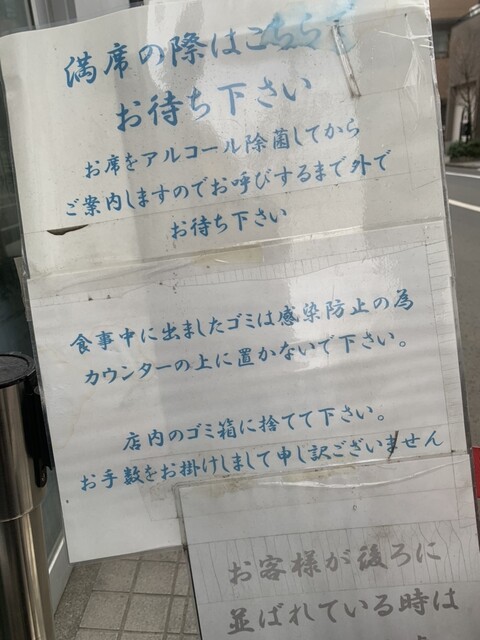 満席の際はこちらで
お待ち下さい
お席をアルコール除菌してから
ご案内しますのでお呼びするまで外で
お待ち下さい
食事中に出ましたゴミは感染防止の為
カウンターの上に置かないで下さい。
店内のゴミ箱に捨てて下さい。
お手数をお掛けしまして申し訳ございません
お客様が後ろに
並ばれている時は